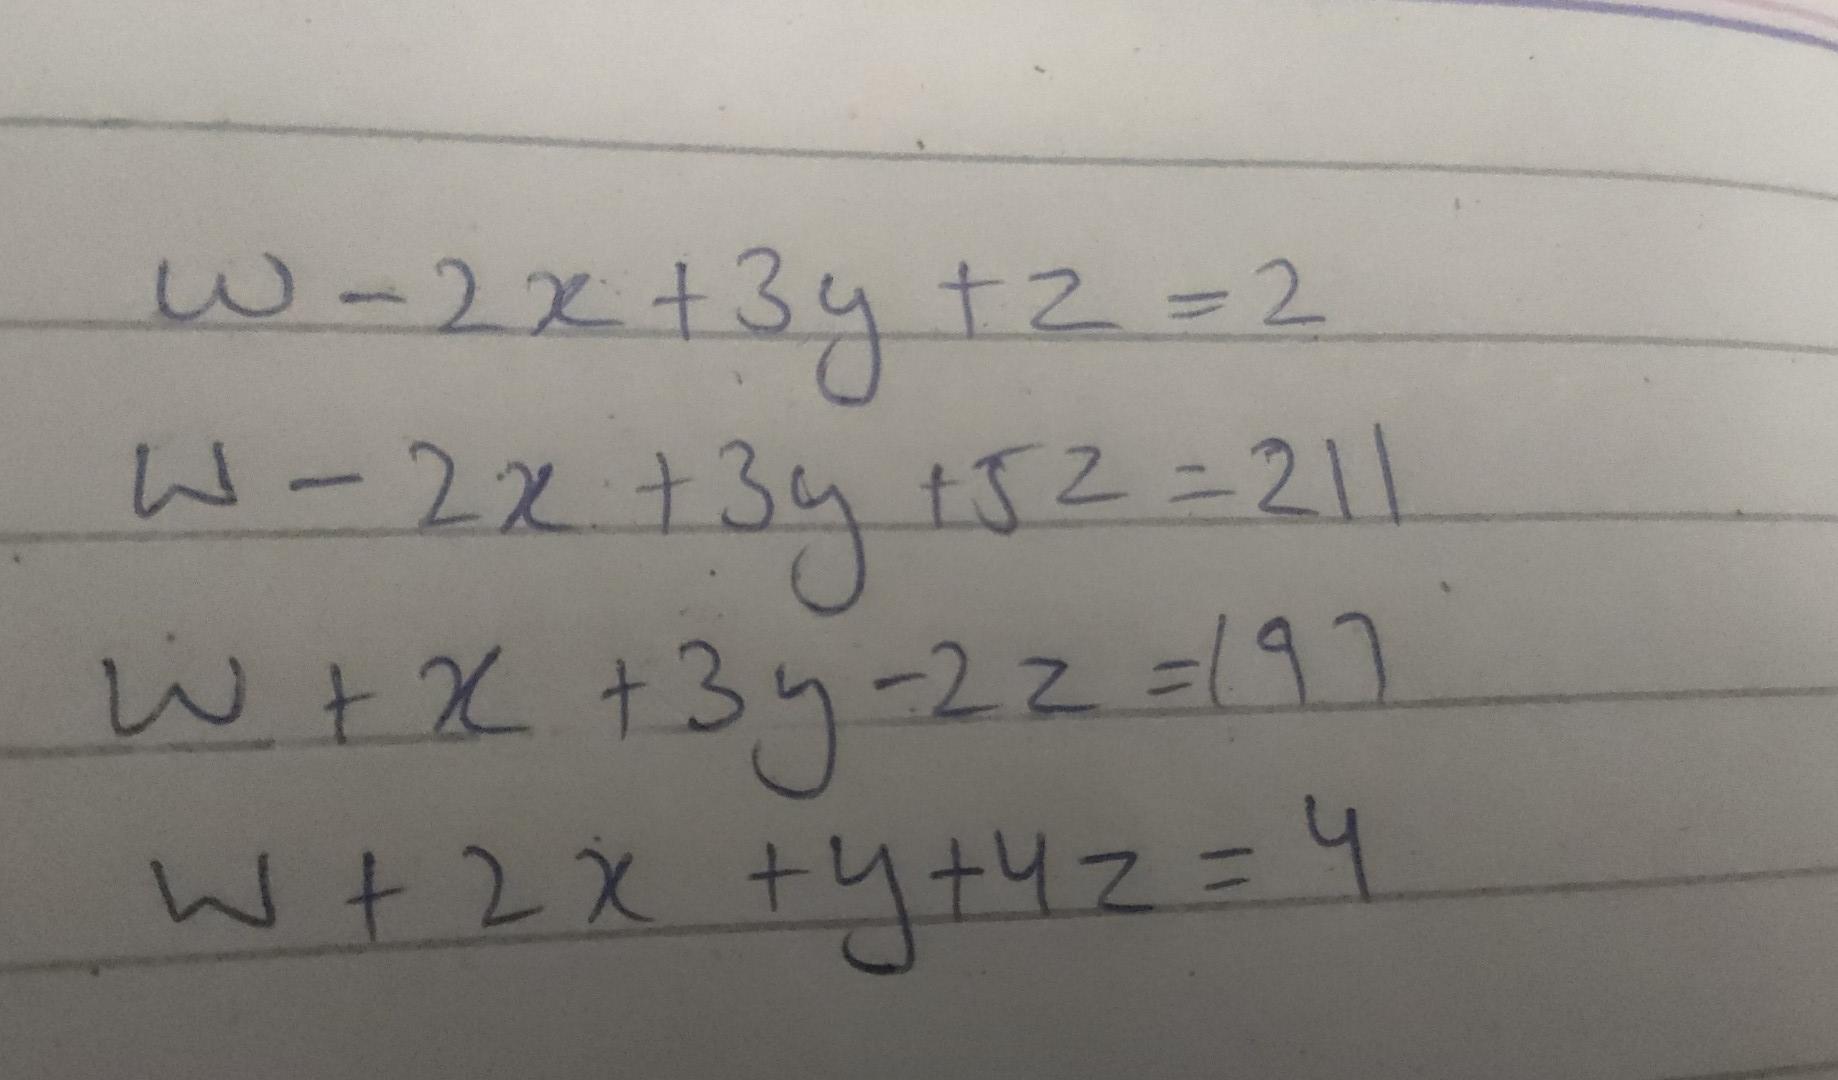 w - 2x + 3y + z = 2
w - 2x + 3y + 5z = 211
w + x + 3y - 2z = 197
w + 2x + y + 4z = 4